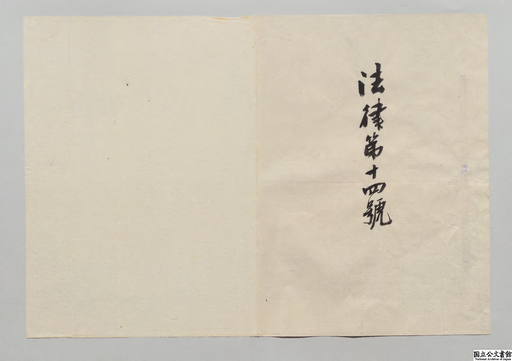 法律第十四號
国立公文書館
National Archives of Japan